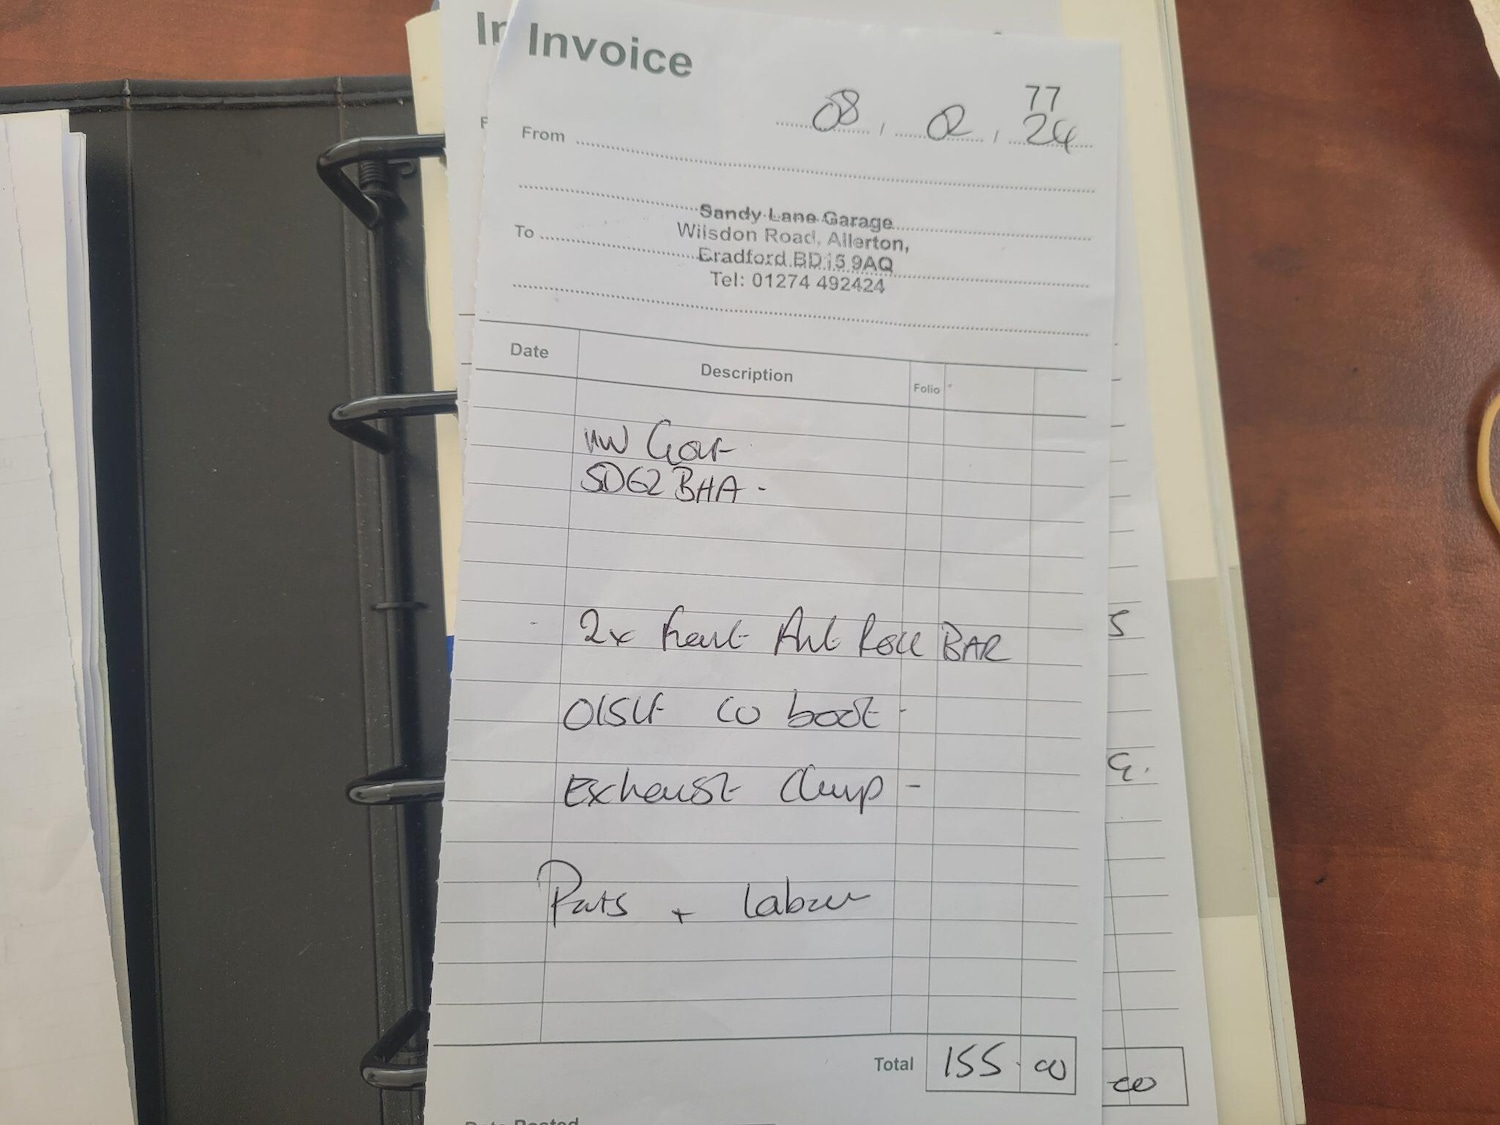 In
Invoice
77
08 / 02 / 24
F
From
Sandy Lane Garage
Wilsdon Road, Allerton,
To
Bradford BD15 9AQ
Tel: 01274 492424
Date Description Folio
VW Golf
SD62 BHA -
2x front Anti Roll BAR
S
O/S/F CV boot -
G.
Exhaust Clamp -
Parts + labour
Total 155.00
00
Date Posted